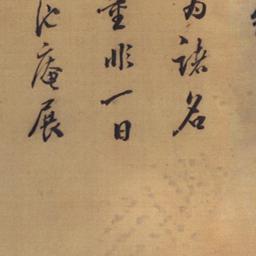 为诸名
重非一日
庵展